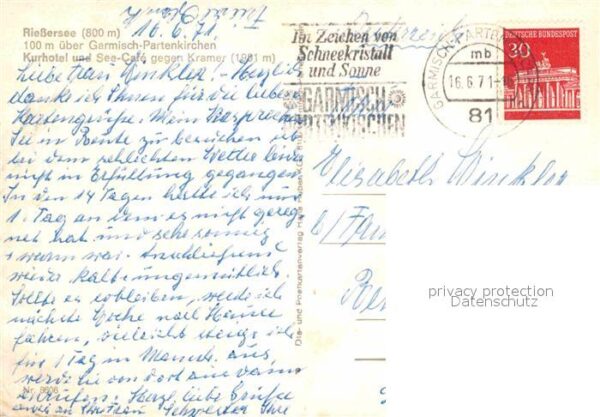 16. 6. 71.
Rießersee (800 m)
100 m über Garmisch-Partenkirchen
Kurhotel und See-Café gegen Kramer (1981 m)
Liebe Frau Winkler! Herzlich
danke ich Ihnen für die lieben
Kartengrüße. Mein Versprechen
Sie in Reute zu besuchen ist
bei dem schlechten Wetter leider
nicht in Erfüllung gegangen.
In den 14 Tagen hatte ich nur
1. Tag an dem es nicht gereg
net hat und sehr sonnig
u warm war. Anschließend
wieder kalt - ungemütlich.
Sollte es so bleiben, werde ich
nächste Woche nach Hause
fahren, vielleicht steige ich
für 1 Tag in Münch. aus,
werde Sie von dort aus dann
anrufen. Herzl. liebe Grüße
auch an Schwester Ihre
Nr. 8606
Im Zeichen von
Schneekristall
und Sonne
GARMISCH
PARTENKIRCHEN
GARMISCH-PARTENKIRCHEN
mb
16. 6. 71
81
DEUTSCHE BUNDESPOST
30
Österreich
Elisabeth Winkler
b/ Fam
Re
privacy protection
Datenschutz